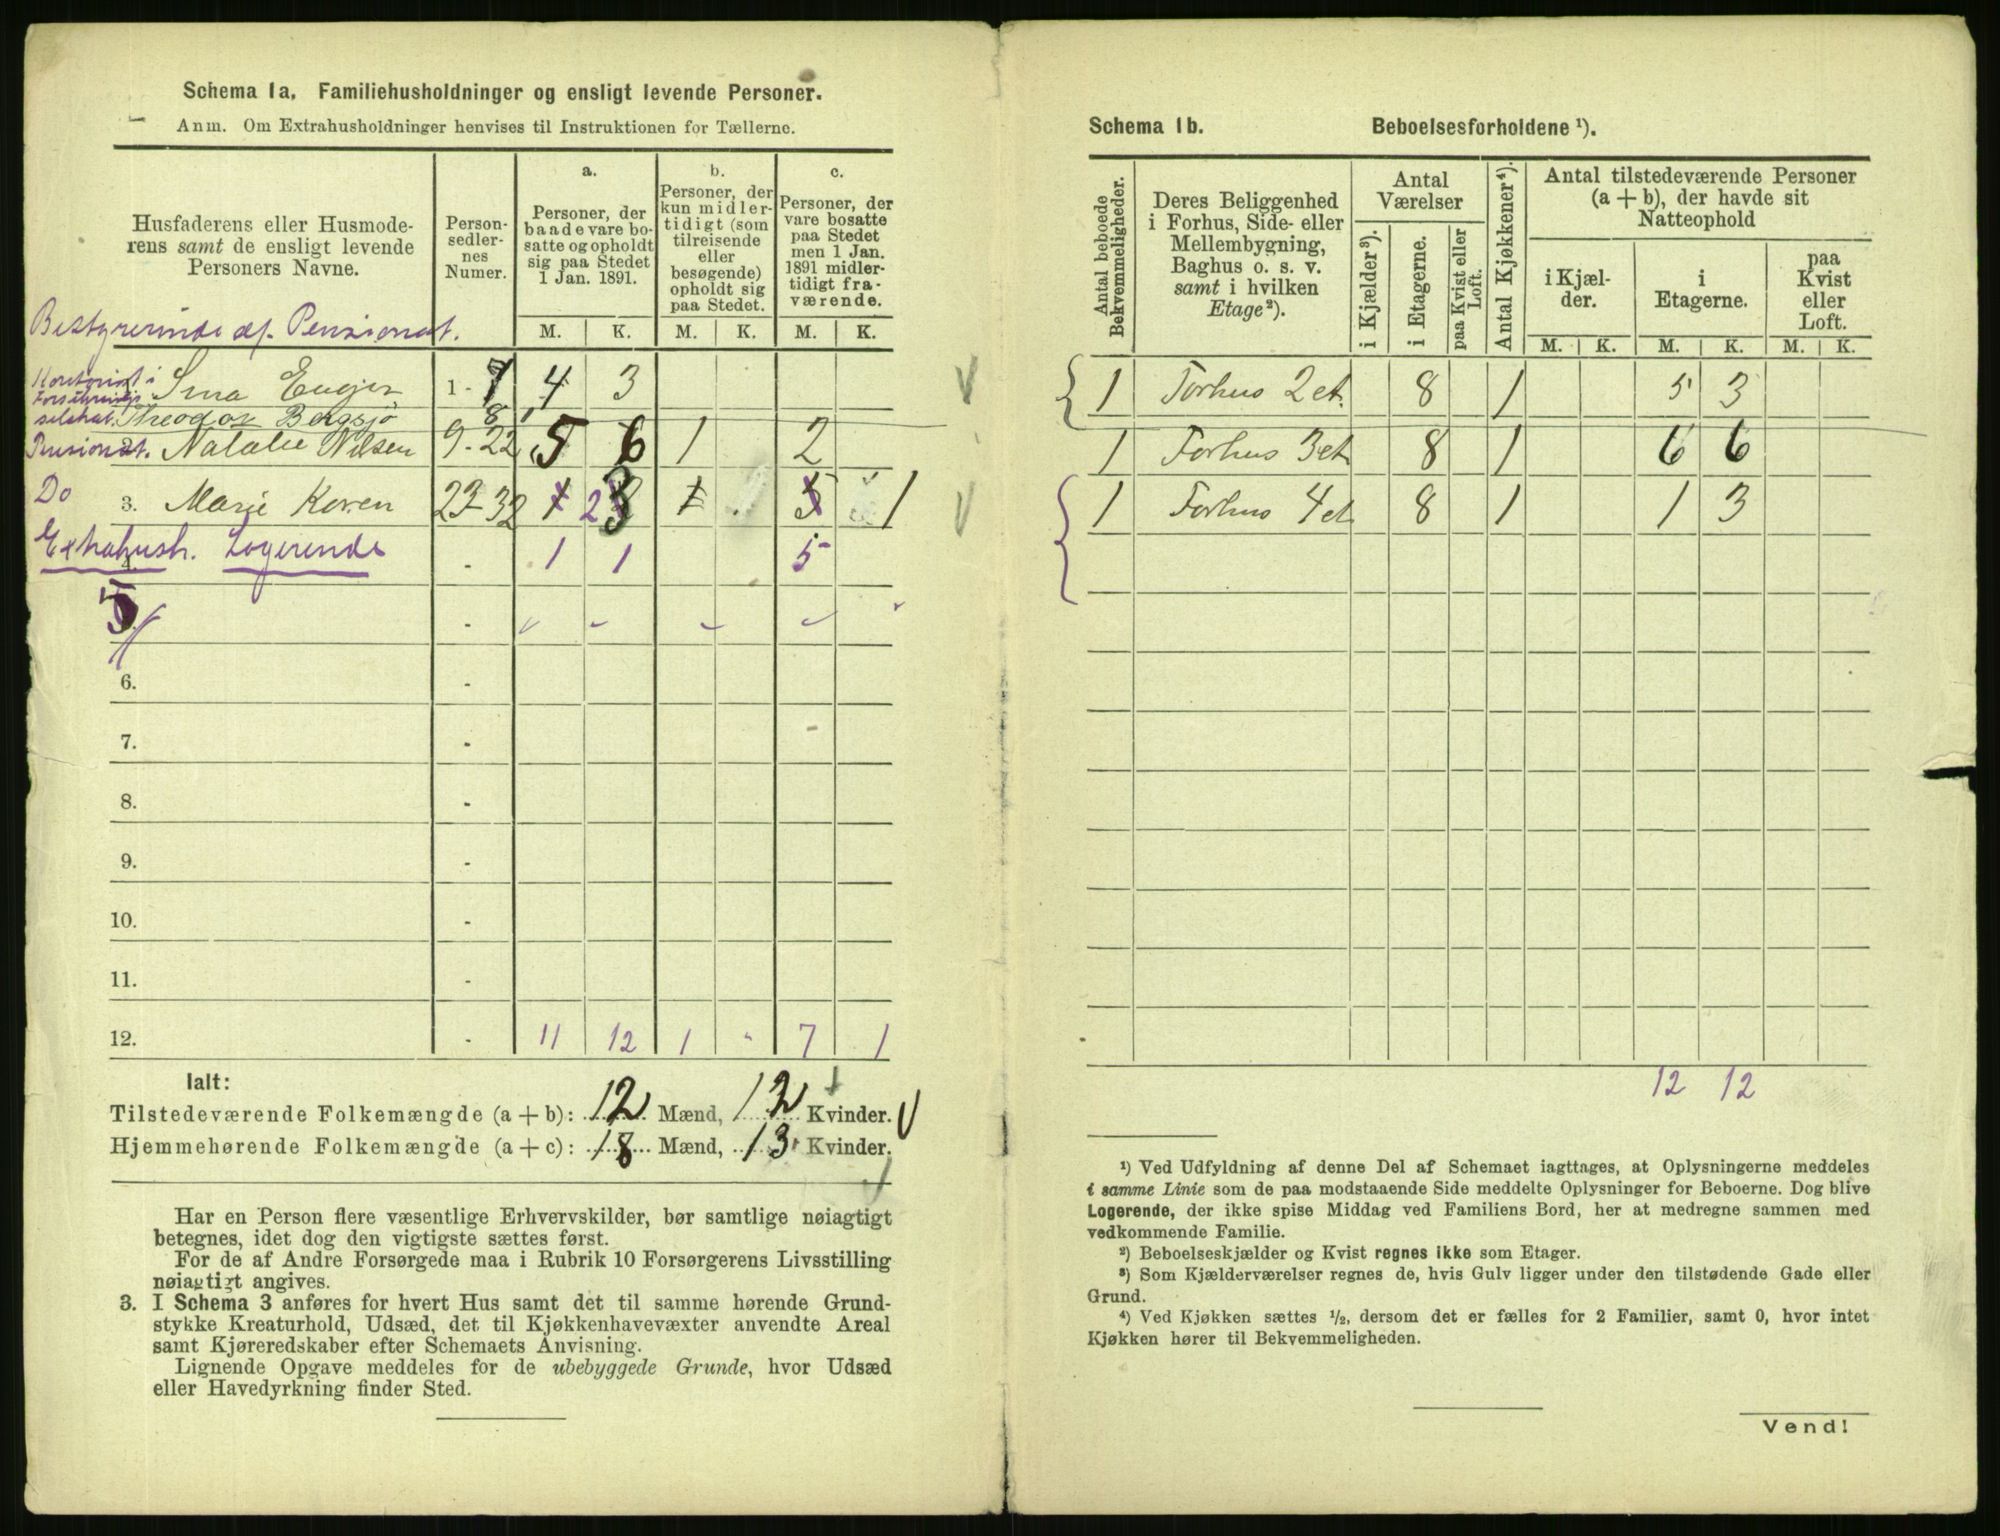 Schema 1a. Familiehusholdninger og ensligt levende Personer.
Anm. Om Extrahusholdninger henvises til Instruktionen for Tællerne.
Husfaderens eller Husmoderens samt de ensligt levende Personers Navne.
Person-sedler-nes Numer.
a.
Personer, der baade vare bosatte og opholdt sig paa Stedet 1 Jan. 1891.
b.
Personer, der kun midlertidigt (som tilreisende eller besøgende) opholdt sig paa Stedet.
c.
Personer, der vare bosatte paa Stedet men 1 Jan. 1891 midlertidigt fraværende.
M. K. M. K. M. K.
Bestyrerinde af Pensionat.
Kontorist i
Sma Enger 1 - 7 4 3
Theodor Bergsjö 8
Pensionat. 2. Natalie Nilsen 9 - 22 5 6 1 2
Do 3. Marie Koren 23-32 1 2 3 1 5 1
Extrahush. Logerende
4. - 1 1 5
5. -
6. -
7. -
8. -
9. -
10. -
11. -
12. - 11 12 1 - 7 1
Ialt:
Tilstedeværende Folkemængde (a + b): 12 Mænd, 12 Kvinder.
Hjemmehørende Folkemængde (a + c): 18 Mænd, 13 Kvinder.
Har en Person flere væsentlige Erhvervskilder, bør samtlige nøiagtigt
betegnes, idet dog den vigtigste sættes først.
For de af Andre Forsørgede maa i Rubrik 10 Forsørgerens Livsstilling
nøiagtigt angives.
3. I Schema 3 anføres for hvert Hus samt det til samme hørende Grund-
stykke Kreaturhold, Udsæd, det til Kjøkkenhavevæxter anvendte Areal
samt Kjøreredskaber efter Schemaets Anvisning.
Lignende Opgave meddeles for de ubebyggede Grunde, hvor Udsæd
eller Havedyrkning finder Sted.
Schema 1b. Beboelsesforholdene ¹).
Antal beboede Bekvemmeligheder.
Deres Beliggenhed i Forhus, Side- eller Mellembygning, Baghus o. s. v. samt i hvilken Etage²).
Antal Værelser
i Kjælder ³).
i Etagerne.
paa Kvist eller Loft.
Antal Kjøkkener⁴).
Antal tilstedeværende Personer (a + b), der havde sit Natteophold
i Kjælder.
i Etagerne.
paa Kvist eller Loft.
M. K. M. K. M. K.
1 Forhus 2 et. 8 1 5 3
1 Forhus 3 et 8 1 6 6
1 Forhus 4 et 8 1 1 3
12 12
¹) Ved Udfyldning af denne Del af Schemaet iagttages, at Oplysningerne meddeles
i samme Linie som de paa modstaaende Side meddelte Oplysninger for Beboerne. Dog blive
Logerende, der ikke spise Middag ved Familiens Bord, her at medregne sammen med
vedkommende Familie.
²) Beboelseskjælder og Kvist regnes ikke som Etager.
³) Som Kjælderværelser regnes de, hvis Gulv ligger under den tilstødende Gade eller
Grund.
⁴) Ved Kjøkken sættes ½, dersom det er fælles for 2 Familier, samt 0, hvor intet
Kjøkken hører til Bekvemmeligheden.
Vend!